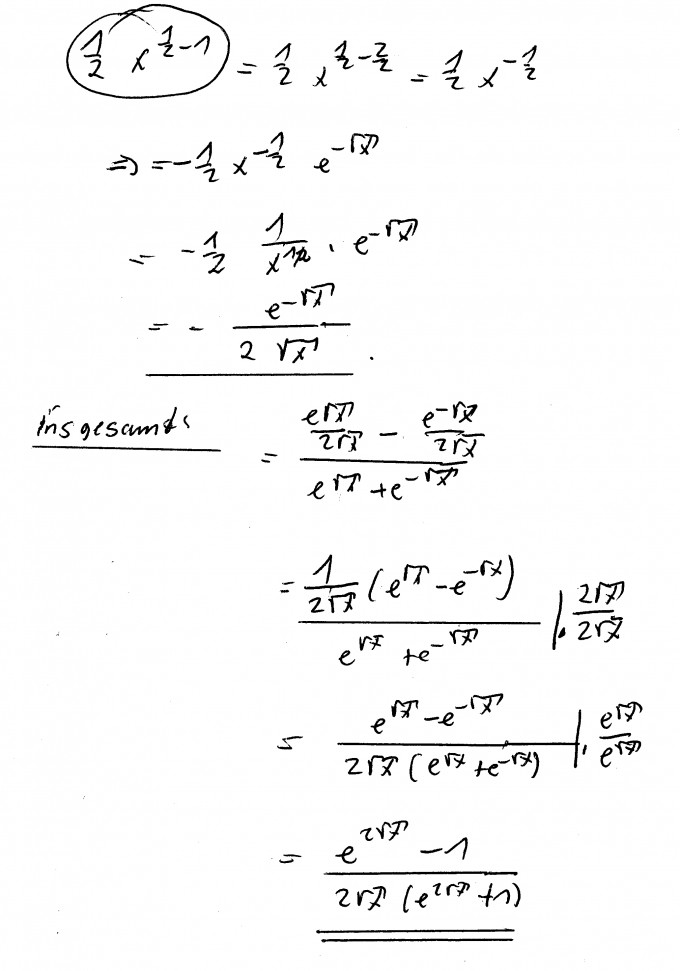 1/2 x^(1/2-1) = 1/2 x^(1/2-2/2) = 1/2 x^(-1/2)
⇒ = -1/2 x^(-1/2) e^(-√x)
= -1/2 1/x^(1/2) · e^(-√x)
= - e^(-√x)/(2√x) .
insgesamt: = (e^(√x)/(2√x) - e^(-√x)/(2√x))/(e^(√x) + e^(-√x))
= (1/(2√x) (e^(√x) - e^(-√x)))/(e^(√x) + e^(-√x)) | · 2√x/2√x
= (e^(√x) - e^(-√x))/(2√x (e^(√x) + e^(-√x))) | · e^(√x)/e^(√x)
= (e^(2√x) - 1)/(2√x (e^(2√x) + 1))